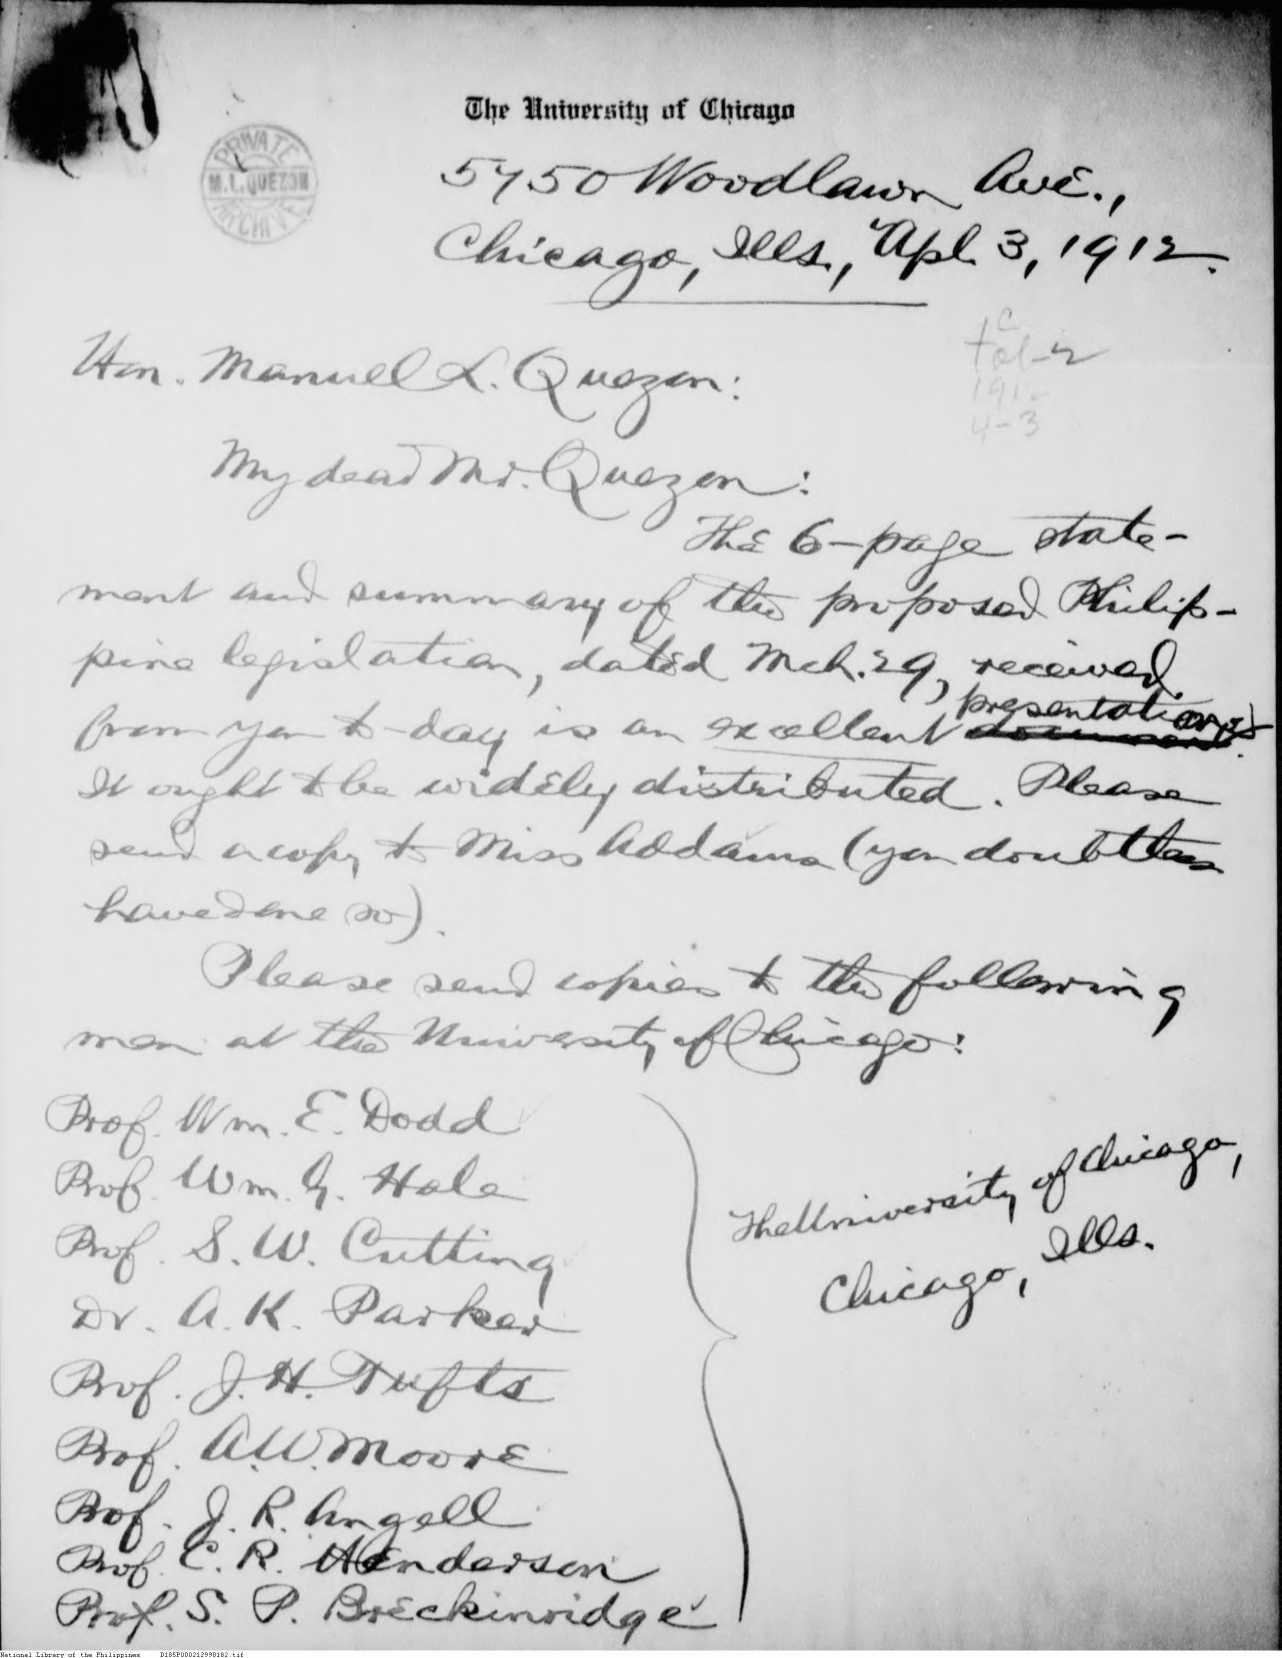 The University of Chicago
PRIVATE
M. L. QUEZON
ARCHIVE
5750 Woodlawn Ave.,
Chicago, Ills., Apl. 3, 1912.
4-3
Hon. Manuel L. Quezon:
My dear Mr. Quezon:
The 6-page state-
ment and summary of the proposed Philip-
pine legislation, dated Mch. 29, received
from you to-day is an excellent presentation
It ought to be widely distributed. Please
send a copy to Miss Addams (you doubtless
have done so).
Please send copies to the following
men at the University of Chicago:
Prof. Wm. E. Dodd
Prof. Wm. G. Hale
Prof. S. W. Cutting
Dr. A. K. Parker
Prof. J. H. Tufts
Prof. A. W. Moore
Prof. J. R. Angell
Prof. C. R. Henderson
Prof. S. P. Breckinridge
The University of Chicago,
Chicago, Ills.
National Library of the Philippines D185P00021299B182.tif